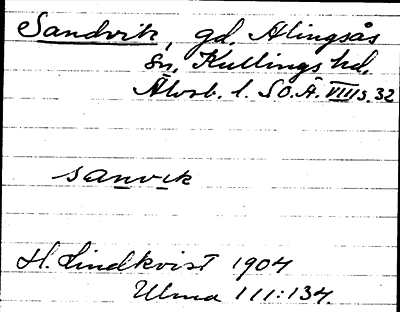 Sandvik, gd. Alingsås
sn, Kullings hd.
Älvsb. l. S.O.Ä. VIII s. 32
sanvık
H. Lindkvist 1904
Ulma 111:134.